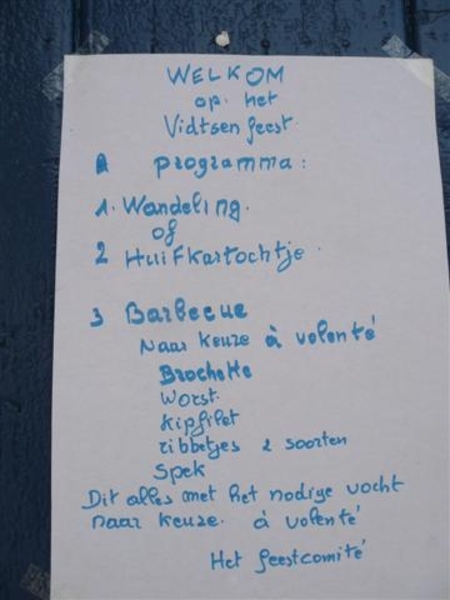 WELKOM
op het
Vidtsen feest
A programma:
1. Wandeling.
of
2 Huifkartochtje.
3 Barbecue
Naar keuze à volonté
Brochette
Worst.
Kipfilet
ribbetjes 2 soorten
Spek
Dit alles met het nodige vocht
naar keuze. à volonté
Het feestcomité